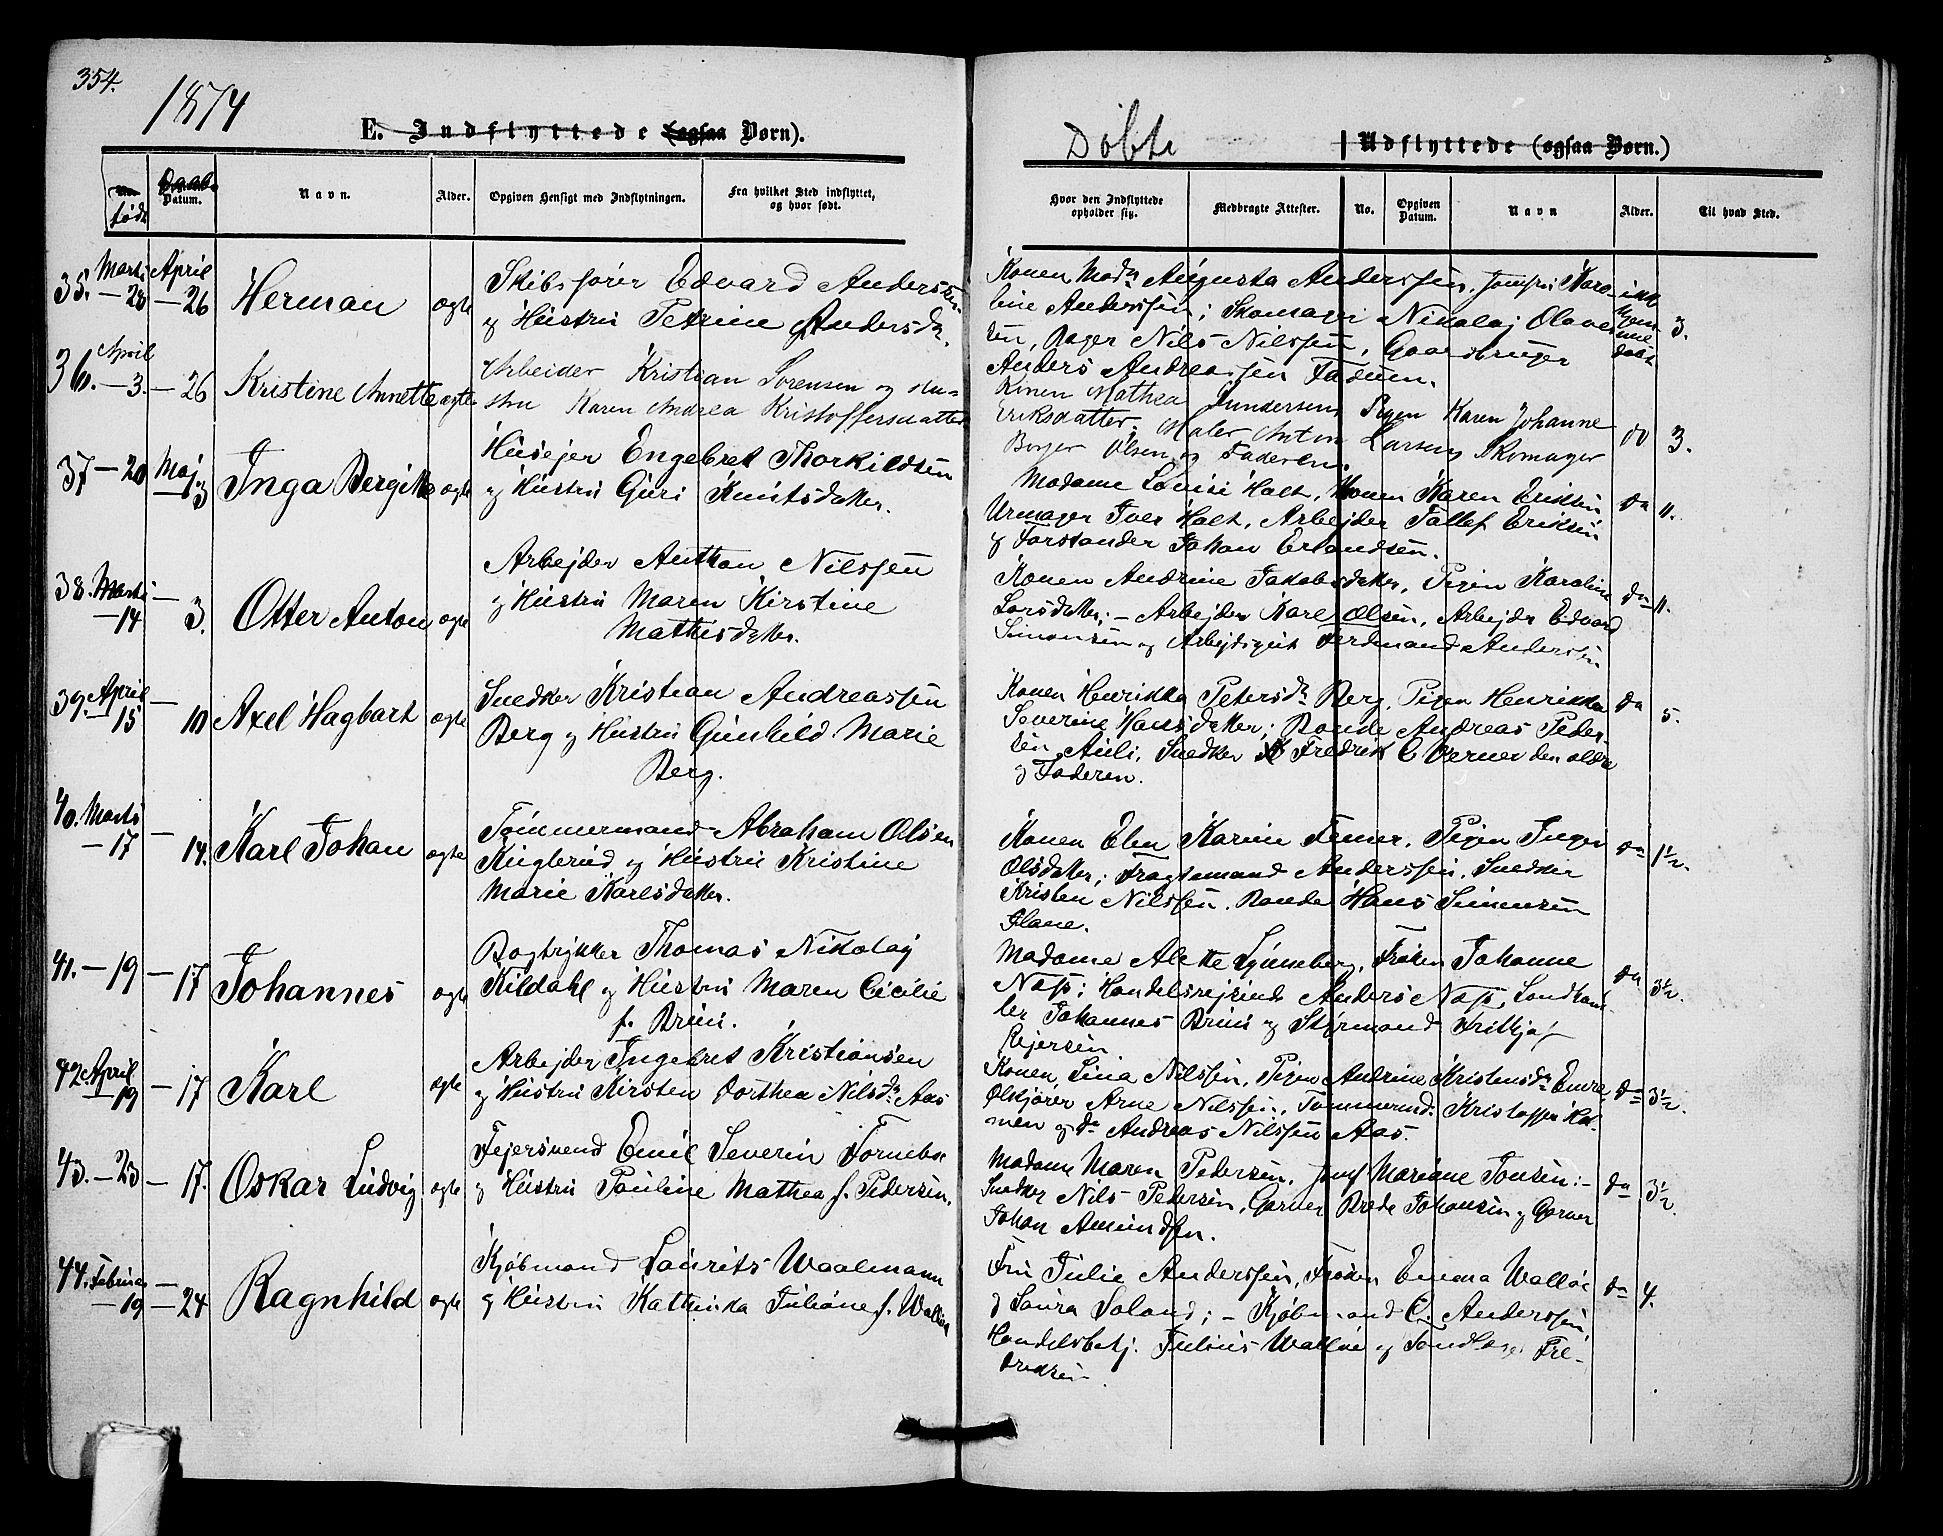 354.
1874
E. Indflyttede (ogsaa Børn).
Døbte
Udflyttede (ogsaa Børn.)
No. født
Daabs Datum.
Navn.
Alder.
Opgiven Hensigt med Indflytningen.
Fra hvilket Sted indflyttet, og hvor født.
Hvor den Indflyttede opholder sig.
Medbragte Attester.
No.
Opgiven Datum.
Navn
Alder.
Til hvad Sted.
35. Marts 28 April 26 Herman ægte
Skibsfører Edvard Anderssen
og Hustru Petrine Andersdr.
Konen Mad. Augusta Anderssen, Jomfru Karo
line Anderssen; Skomager Nikolaj Olaves
sen, Bager Nils Nilssen, Gaardbruger
Anders Andreassen Fadum.
ikke hjemmedøbt 3.
36. April 3. 26 Kristine Annette ægte
Arbeider Kristian Sørensen og Hu-
stru Karen Andrea Kristoffersdatter
Konen Mathea Gundersen, Pigen Karen Johanne
Eriksdatter, Maler Anton Larsen, Skomager
Borger Olsen og Faderen.
do 3.
37 20 Maj 3 Inga Bergitte ægte
Huseier Engebret Thorkildsen
og Hustru Guri Knutsdatter.
Madame Lovise Holt, Konen Karen Eriksen
Urmager Iver Holt, Arbejder Tollef Eriksen
og Forstander Johan Erlandsen.
do 11.
38. Marts 14 3. Otter Anton ægte
Arbejder Anthon Nilssen
og Hustru Maren Kirstine
Mathisdatter.
Konen Andrine Jakobsdatter, Pigen Karoline
Larsdatter; – Arbejder Karl Olsen, Arbejder Edvard
Simonsen og Arbejdsgut Ferdinand Andersen
do 11.
39. April 15 10 Axel Hagbart ægte
Snedker Kristian Andreassen
Berg og Hustru Gunhild Marie
Berg.
Konen Henrikka Petersdr Berg, Pigen Henrikka
Severine Hansdatter; Bonde Andreas Peder
sen Auli, Snedker Fredrik E Werner den ældre
og Faderen.
do 5.
40. Marts 17 14. Karl Johan ægte
Tømmermand Abraham Olsen
Kuglerud og Hustru Kristine
Marie Karlsdatter.
Konen Elen Karine Femer, Pigen Inger
Olsdatter; Fragtemand Anderssen, Snedker
Kristen Nilssen, Bonde Hans Simensen
Flane.
do 1½.
41. 19 17 Johannes ægte
Bogtrykker Thomas Nikolaj
Kildahl og Hustru Maren Cicilie
f. Bruu.
Madame Alette Lynneberg, Frøken Johanne
Næss; Handelsrejsende Anders Næss, Landhand
ler Johannes Bruu og Styrmand Fritjof
Rejersen.
do 3½.
42. April 19 17 Karl ægte
Arbejder Ingebret Kristiansen
og Hustru Kirsten Dorthea Nilsdr Aas
Konen Lina Nilssen, Pigen Andrine Kristensdr Emre
Ølkjører Arne Nilssen, Tømmermd. Kristoffer Hal-
men og do Andreas Nilssen Aas.
do 3½.
43. 23 17. Oskar Ludvig ægte
Fejersvend Emil Severin Fornebo
og Hustru Pauline Mathea f. Pedersen.
Madame Maren Pedersen, Jomf Mariane Jonsen: –
Snedker Nils Pedersen, Garver Brede Johansen og Garver
Johan Amundsen.
do 3½.
44. Februar 19 24 Ragnhild ægte
Kjøbmand Laurits Waalmann
og Hustru Kathinka Juliane f. Walløe
Fru Julie Anderssen, Frøken Emma Walløe
og Laura Soland; – Kjøbmand C. Anderssen,
Handelsbetj. Julius Walløe og Tandlæge Fre-
driksen.
do 4.